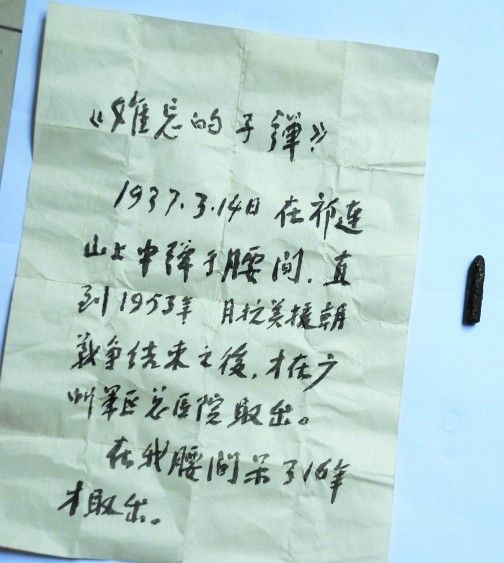 《难忘的子彈》
1937.3.14日在祁连
山上中弹于腰间，直
到1953年 月抗美援朝
战争结束之後，才在广
州军区总医院取出。
在我腰间呆了16年
才取出。